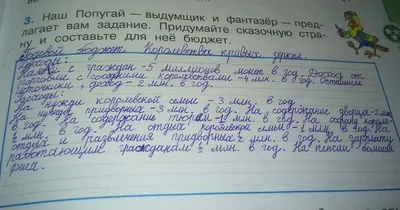 3. Наш Попугай – выдумщик и фантазёр – пред-
лагает вам задание. Придумайте сказочную стра-
ну и составьте для неё бюджет.
Годовой бюджет Королевства кривых зеркал.
Доходы:
Налоги с граждан – 5 миллионов монет в год. Доход от
торговли с соседними королевствами – 4 млн. в год. Остальные
источники, доход – 2 млн. в год.
Расходы:
На нужды королевской семьи – 3 млн. в год.
На нужды придворных – 3 млн. в год. На содержание дворца – 2 млн.
в год. На содержание тюрем – 1 млн. в год. На охрану короля –
млн. в год. На отдых королевской семьи – 1 млн. в год. На
отдых и развлечения придворных млн. в год. На зарплату
работающим гражданам млн. в год. На пенсии большая
фига.